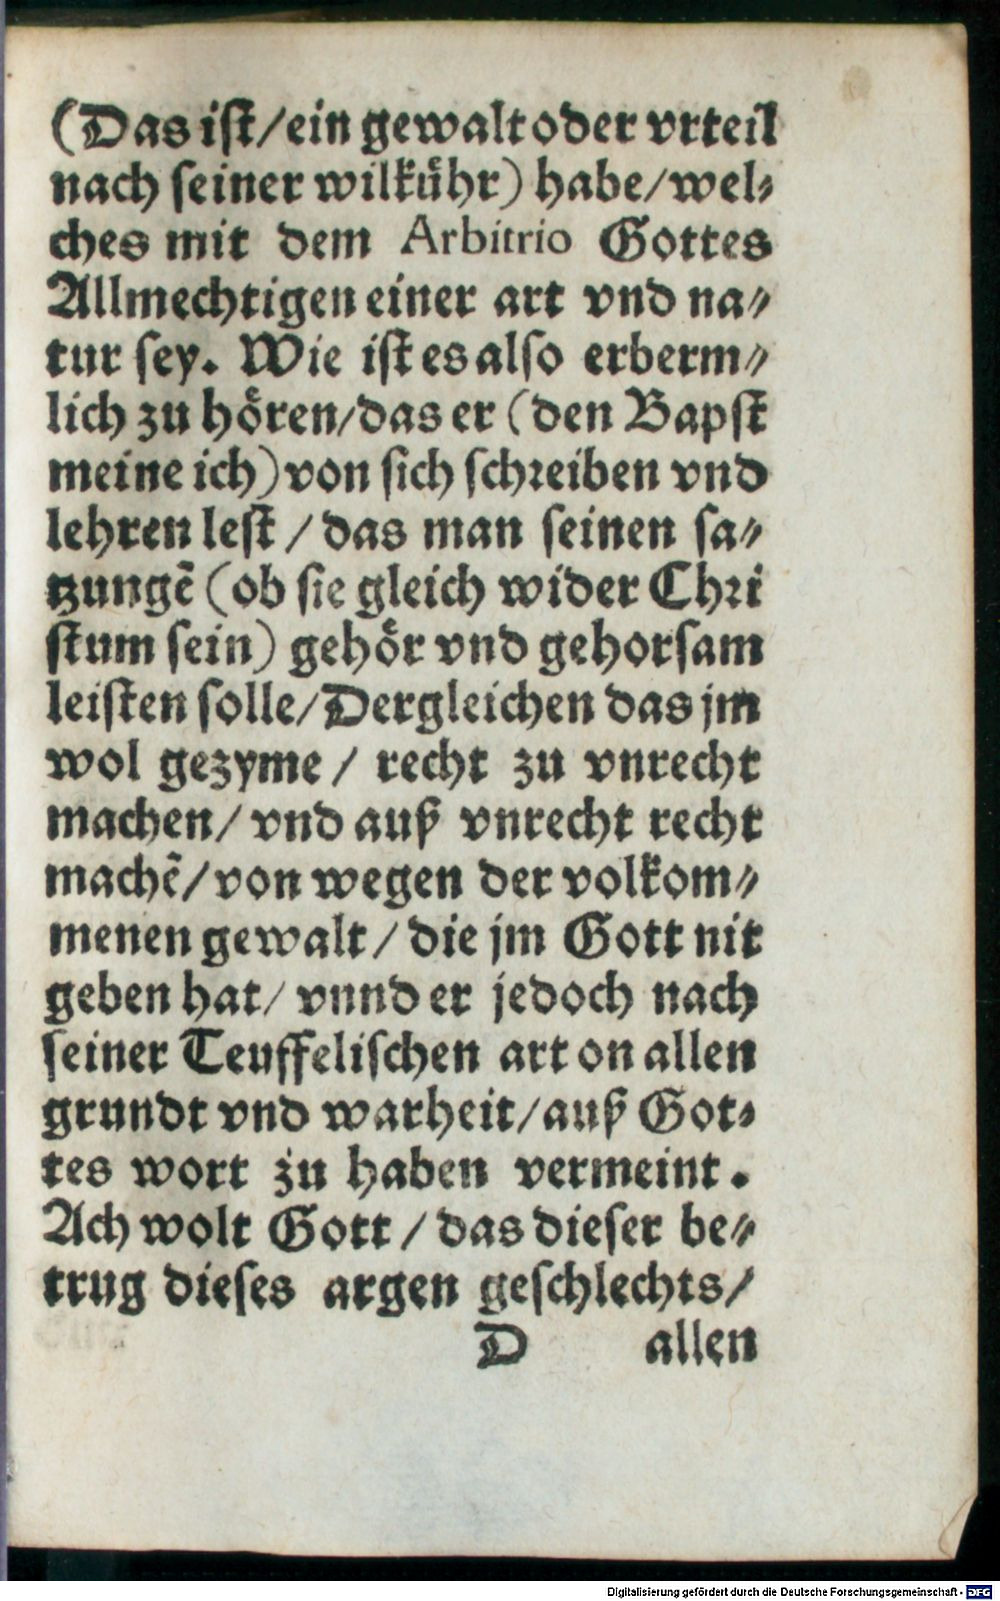 (Das ist/ein gewalt oder vrteil
nach seiner wilkühr) habe/wel⸗
ches mit dem Arbitrio Gottes
Allmechtigen einer art vnd na⸗
tur sey. Wie ist es also erberm⸗
lich zu hören/das er (den Bapst
meine ich) von sich schreiben vnd
lehren lest / das man seinen sa⸗
tzungē (ob sie gleich wider Chri
stum sein) gehör vnd gehorsam
leisten solle/Dergleichen das jm
wol gezyme / recht zu vnrecht
machen/ vnd auß vnrecht recht
machē/von wegen der volkom⸗
menen gewalt / die jm Gott nit
geben hat/ vnnd er jedoch nach
seiner Teuffelischen art on allen
grundt vnd warheit/auß Got⸗
tes wort zu haben vermeint.
Ach wolt Gott / das dieser be⸗
trug dieses argen geschlechts/
D allen
Digitalisierung gefördert durch die Deutsche Forschungsgemeinschaft - DFG